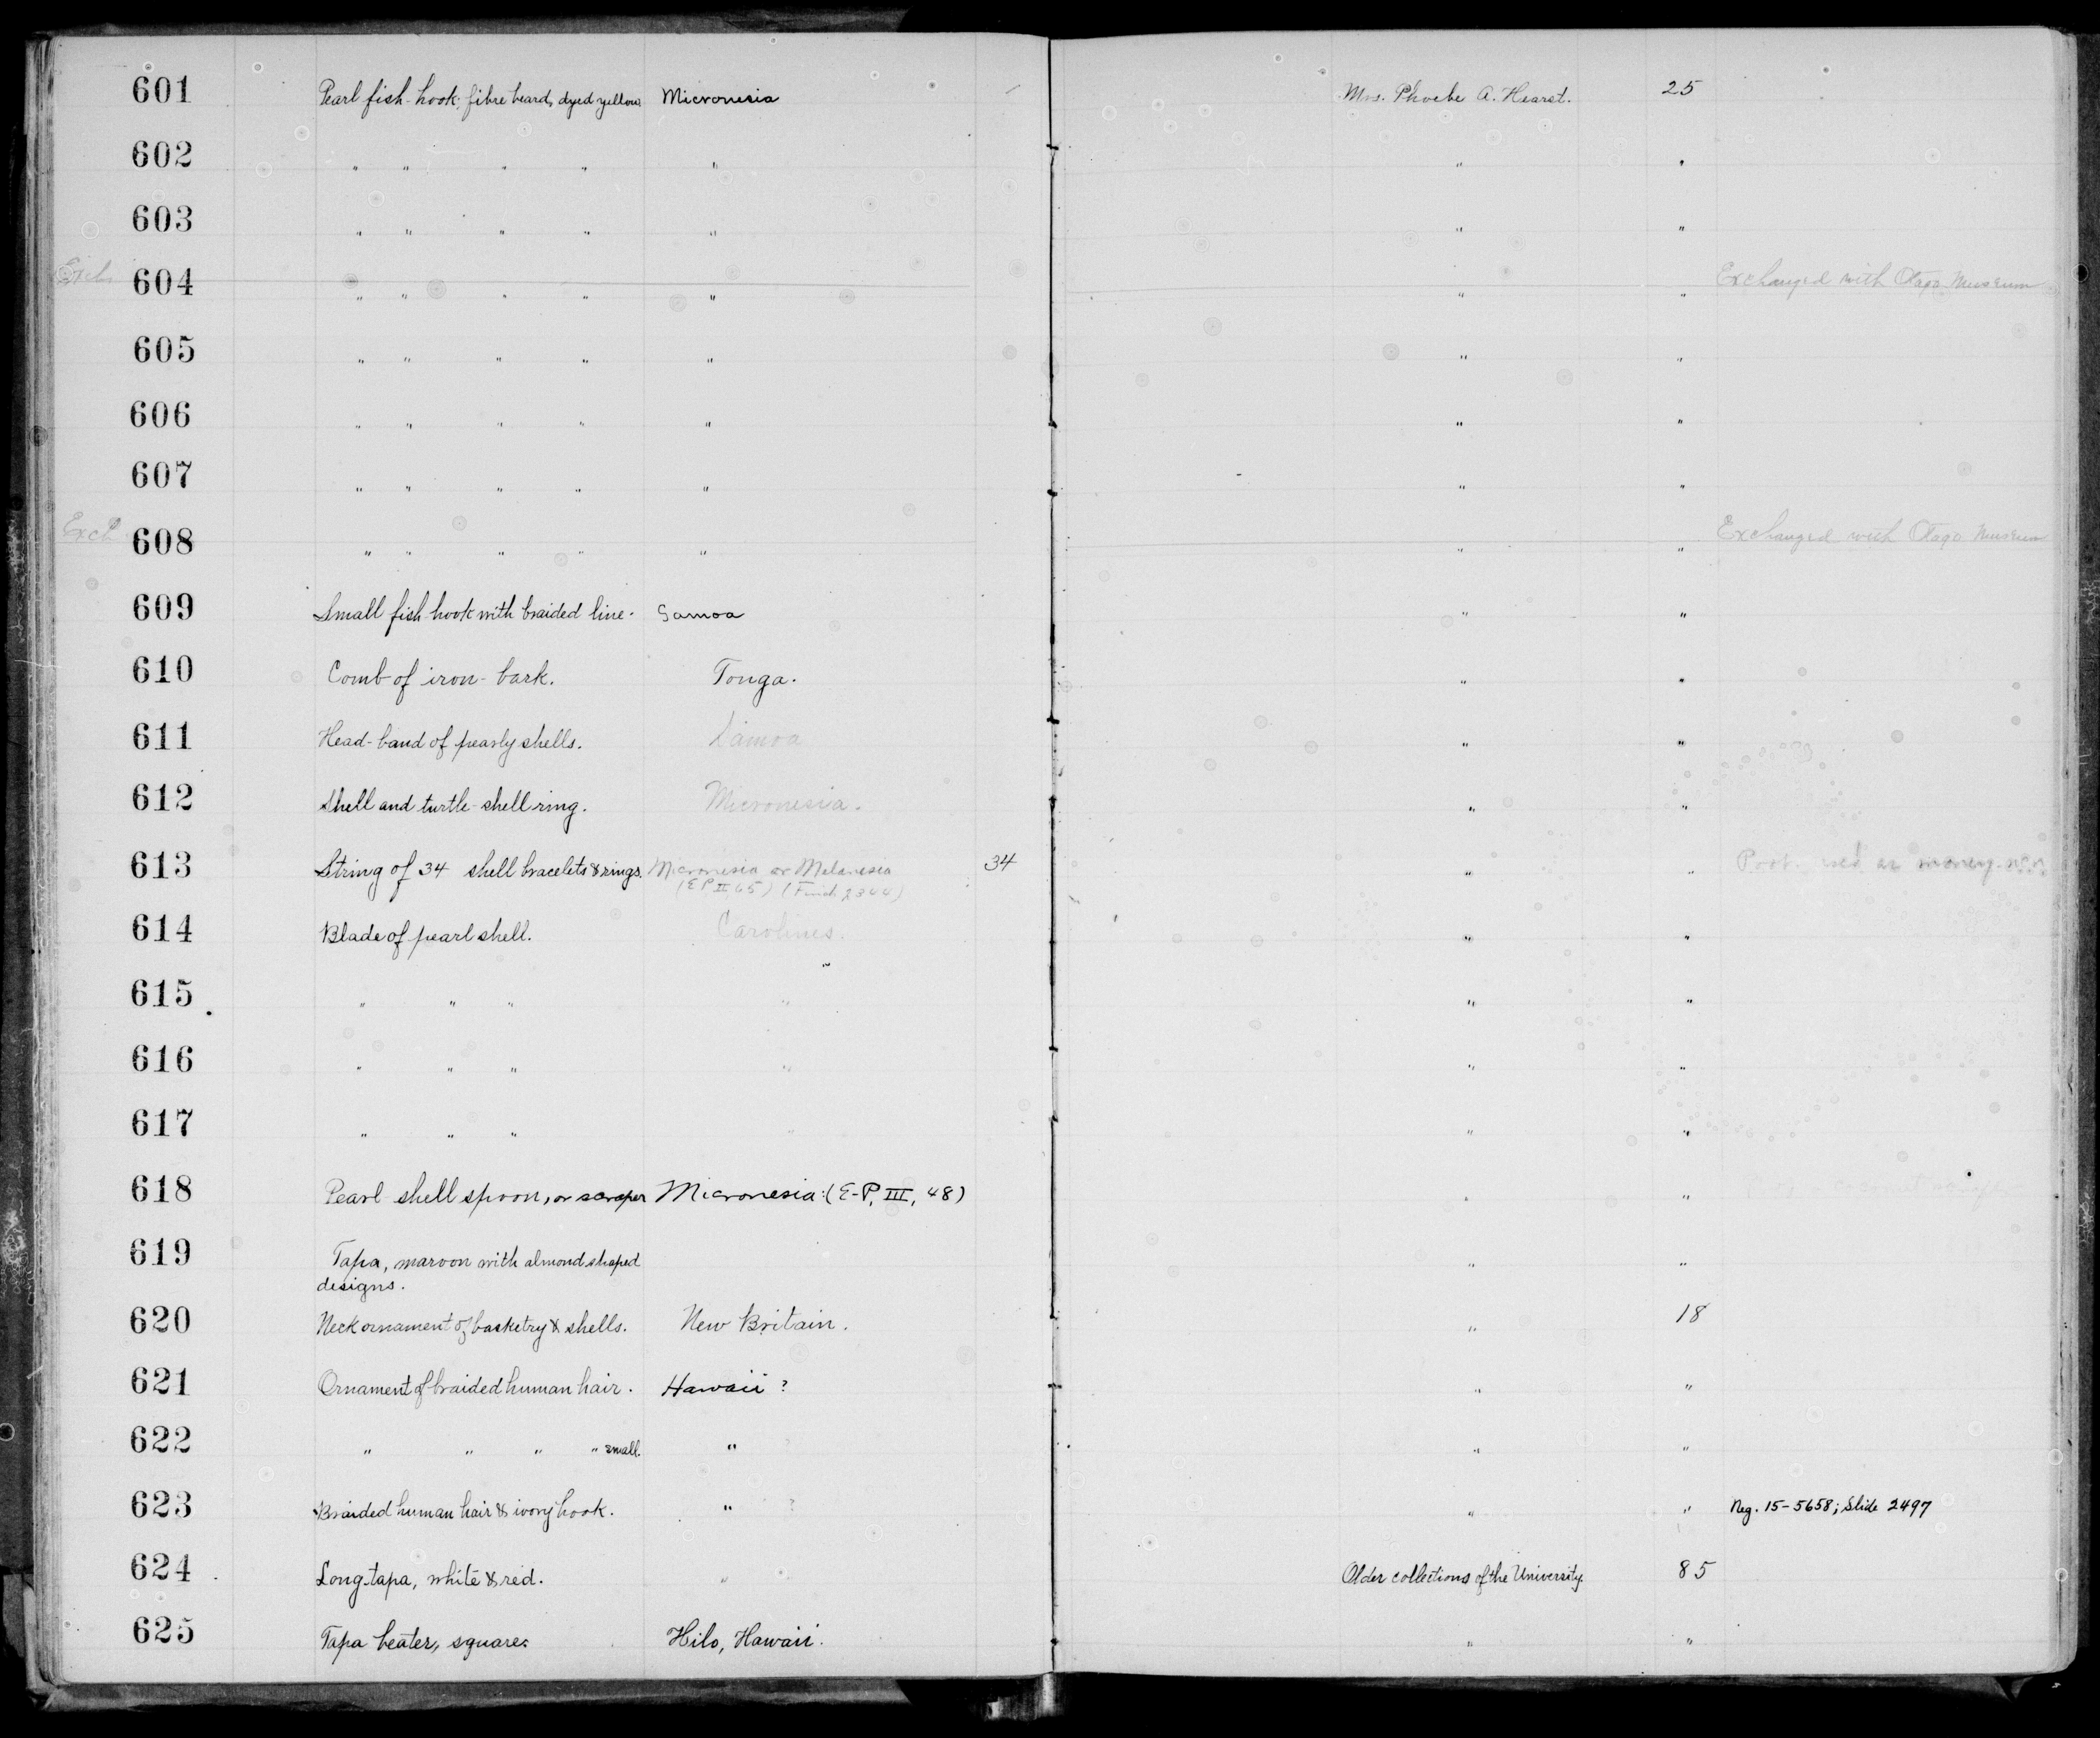 601 Pearl fish-hook; fibre beard, dyed yellow Micronesia Mrs. Phoebe A. Hearst. 25
602 " " " " " " "
603 " " " " " " "
Exch 604 " " " " " " " Exchanged with Otago Museum
605 " " " " " " "
606 " " " " " " "
607 " " " " " " "
Exch 608 " " " " " " " Exchanged with Otago Museum
609 Small fish-hook with braided line. Samoa " "
610 Comb of iron-bark. Tonga. " "
611 Head-band of pearly shells. Samoa " "
612 Shell and turtle-shell ring. Micronesia. " "
613 String of 34 shell bracelets & rings. Micronesia or Melanesia 34 " " Prob. used as money.
(E P II 65) (Finch 2344)
614 Blade of pearl shell. Carolines. " "
615 " " " " " "
616 " " " " " "
617 " " " " " "
618 Pearl shell spoon, or scraper Micronesia: (E-P, III, 48) " "
619 Tapa, maroon with almond shaped " "
designs.
620 Neck ornament of basketry & shells. New Britain. " 18
621 Ornament of braided human hair. Hawaii ? " "
622 " " " " small. " " "
623 Braided human hair & ivory hook. " ? " " Neg. 15-5658; Slide 2497
624 Long tapa, white & red. " Older collections of the University. 85
625 Tapa beater, square. Hilo, Hawaii. " "